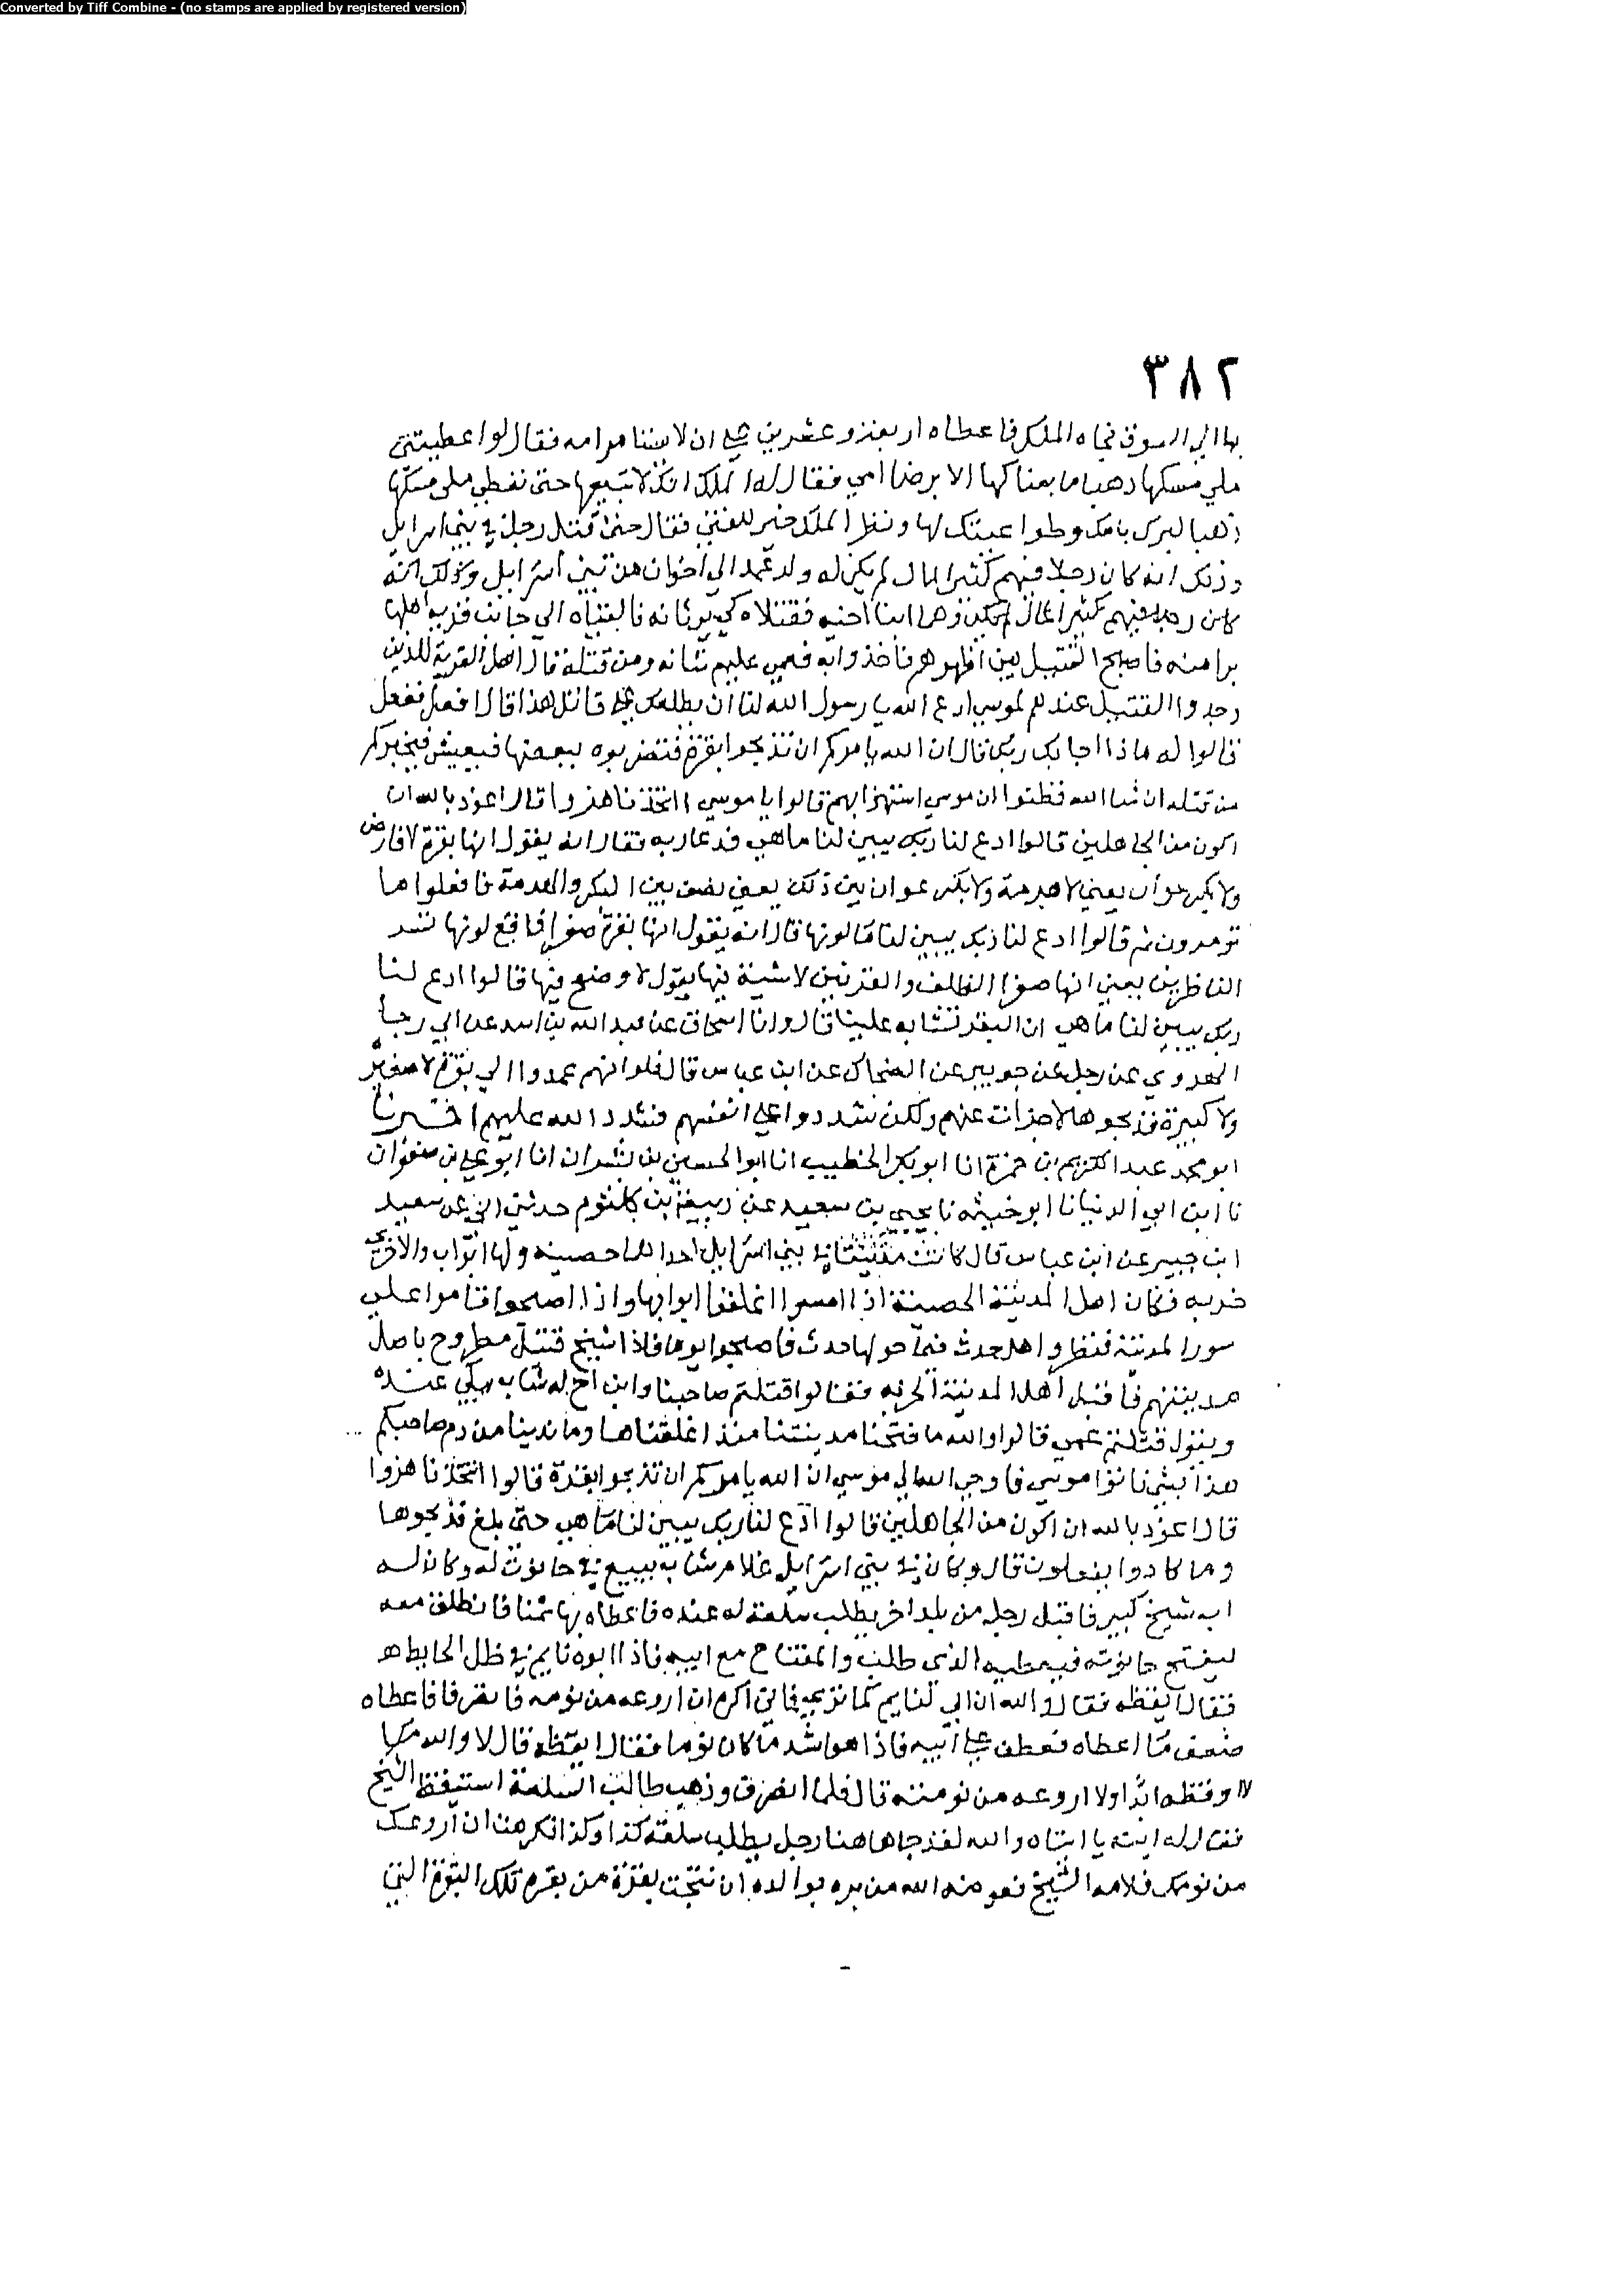 Converted by Tiff Combine - (no stamps are applied by registered version)
٣٨٢
بها الي السوق فجاه الملك فاعطاه اربعة وعشرين علي ان لا يستامر امه فقال لو اعطيتني
ملي مسكها ذهبا ما بعناكها الا برضا امي فقال له الملك انك لا تبيعها حتى تعطي ملي مسكها
ذهبا لبرك بامك وطواعيتك لها ونظر الملك خير للفتي فقال حتى قتل رجل في بني اسرايل
وذلك انه كان رجلا فيهم كثير المال لم يكن له ولد عمد الي اخوان من بني اسرايل وذلك انه
كان رجل فيهم كثير المال وهما ابنا اخيه فقتلاه كي يرثانه فالقياه الي جانب قرية اهلها
برا منه فاصبح القتيل بين اظهرهم فاخذوا به فعمي عليهم شانه ومن قتله قال اهل القرية الذين
وجدوا القتيل عندهم لموسي ادع الله يا رسول الله لنا ان يطلعك علي قاتل هذا قال افعل ففعل
قالوا له ماذا اجابك ربك قال ان الله يامركم ان تذبحوا بقرة فتضربوه ببعضها فيعيش فيخبركم
من قتله ان شا الله فظنوا ان موسي استهزا بهم قالوا يا موسي اتتخذنا هزوا قال اعوذ بالله ان
اكون من الجاهلين قالوا ادع لنا ربك يبين لنا ما هي فدعا ربه فقال انه يقول انها بقرة لا فارض
ولا بكر عوان يعني لا هرمة ولا بكر عوان بين ذلك يعني نصف بين البكر والهرمة فافعلوا ما
تومرون ثم قالوا ادع لنا ربك يبين لنا ما لونها قال انه يقول انها بقرة صفرا فاقع لونها تسر
الناظرين يعني انها صفرا الظلف والقرنين لا شية فيها يقول لا وضح فيها قالوا ادع لنا
ربك يبين لنا ما هي ان البقر تشابه علينا قال وانا اسحاق عن عبد الله بن اسد عن ابي رجا
الهروي عن رجل عن جويبر عن الضحاك عن ابن عباس قال فلو انهم عمدوا الي بقرة لا صغيرة
ولا كبيرة فذبحوها لاجزات عنهم ولكن شددوا علي انفسهم فشدد الله عليهم اخبرنا
ابو محمد عبد الكريم بن حمزة انا ابو بكر الخطيب انا ابو الحسين بن بشران انا ابو علي بن صفوان
نا ابن ابي الدنيا نا ابو خيثمه نا يحيي بن سعيد عن ربيعة بن كلثوم حدثني ابي عن سعيد
ابن جبير عن ابن عباس قال كانت مدينتان في بني اسرايل احداهما حصينه ولها ابواب والاخري
خربه فكان اهل المدينة الحصينة اذا امسوا اغلقوا ابوابها واذا اصبحوا قاموا علي
سور المدينة فنظروا هل حدث فيما حولها حدث فاصبحوا يوما فاذا شيخ قتيل مطروح باصل
مدينتهم فاقبل اهل المدينة الخربه فقالوا قتلتم صاحبنا وابن اخ له شاب يبكي عنده
ويقول قتلتم عمي قالوا والله ما فتحنا مدينتنا منذ اغلقناها وما ندينا من دم صاحبكم
هذا بشي فاتوا موسي فاوحي الله الي موسي ان الله يامركم ان تذبحوا بقرة قالوا اتتخذنا هزوا
قال اعوذ بالله ان اكون من الجاهلين قالوا ادع لنا ربك يبين لنا ما هي حتى بلغ فذبحوها
وما كادوا يفعلون قال وكان في بني اسرايل غلام شاب يبيع في حانوت له وكان له
اب شيخ كبير فاقبل رجل من بلد اخر يطلب سلعة له عنده فاعطاه بها ثمنا فانطلق معه
ليفتح حانوته فيعطيه الذي طلب والمفتاح مع ابيه فاذا ابوه نايم في ظل الحايط
فقال ايقظه فقال والله ان ابي لنايم كما تري واني اكره ان اروعه من نومه فانصرفا فاعطاه
ضعف ما اعطاه فعطف علي ابيه فاذا هو اشد ما كان نوما فقال ايقظه قال لا والله
لا اوقظه ابدا ولا اروعه من نومته قال فلما انصرف وذهب طالب السلعة استيقظ الشيخ
فقال له ابنه يا ابتاه والله لقد جا هاهنا رجل يطلب سلعة كذا وكذا فكرهت ان اروعك
من نومك فلامه الشيخ فعوضه الله من بره بوالده ان نتجت بقرة من بقره تلك البقرة التي